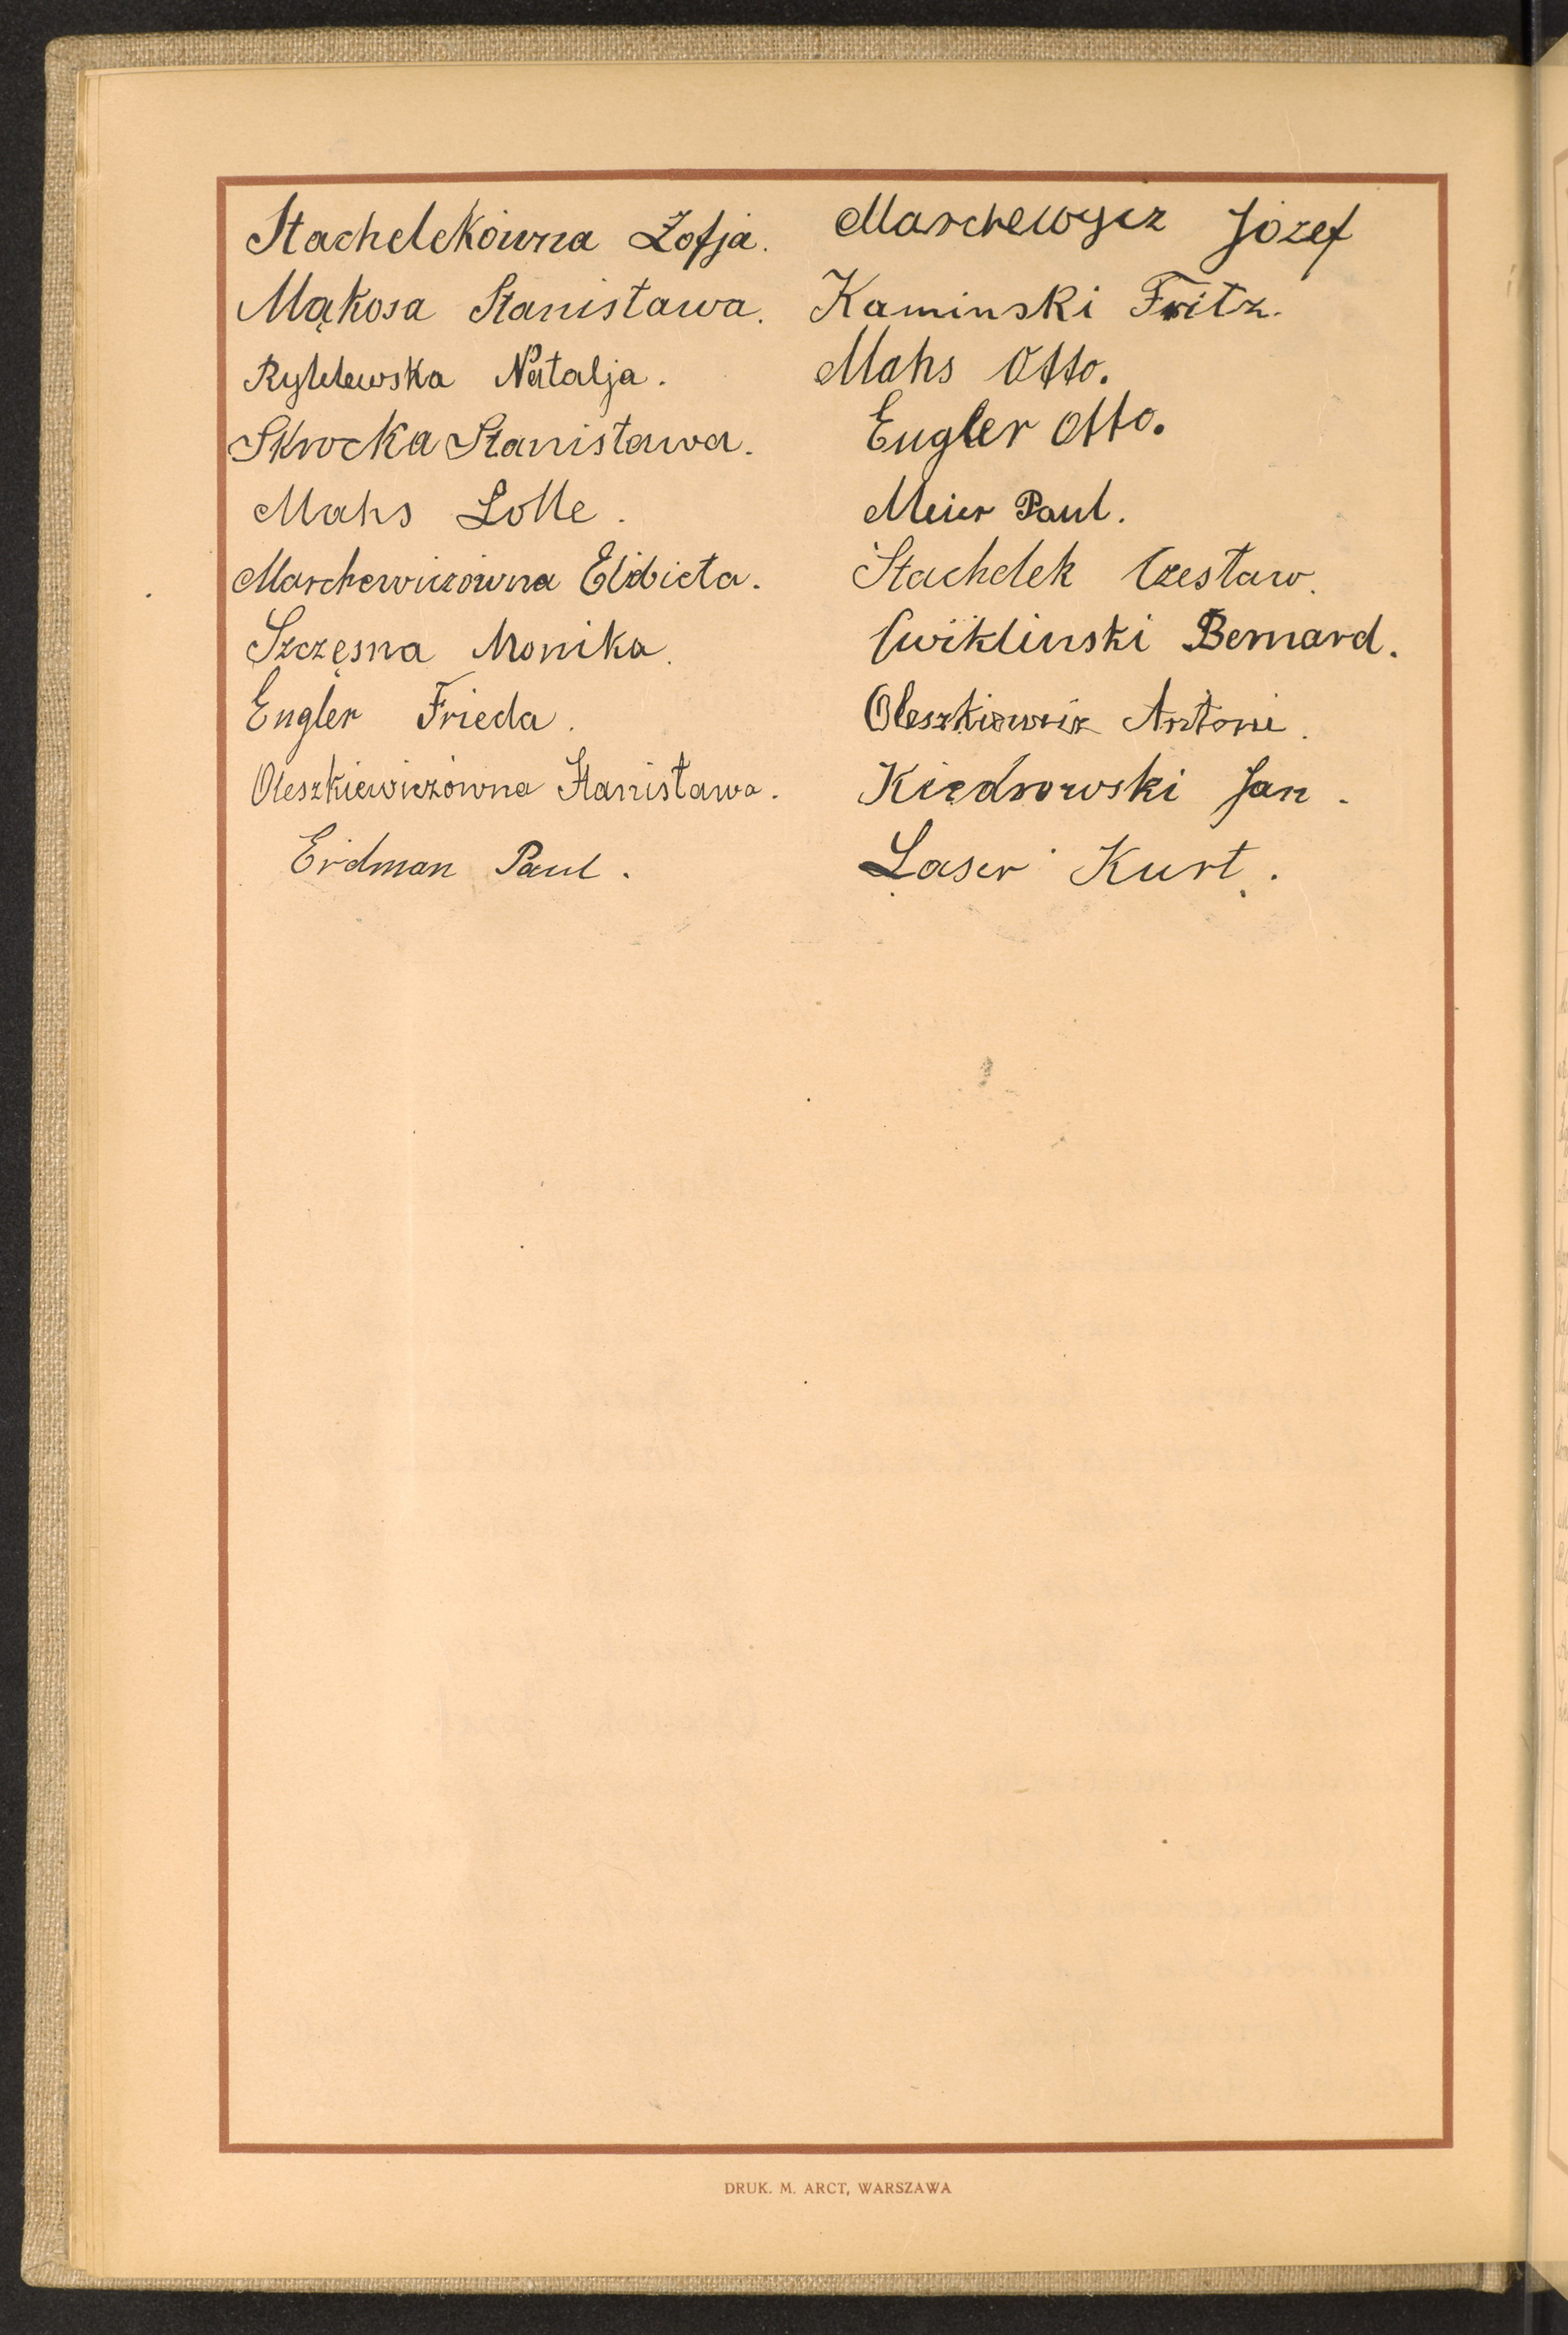 Stachelekówna Zofja.
Mąkosa Stanisława.
Rylelewska Natalja.
Skrocka Stanisława.
Mahs Lotte.
Marchewiczówna Elżbieta.
Szczęsna Monika.
Engler Frieda.
Oleszkiewiczówna Stanisława.
Erdman Paul.
Marchewycz Józef
Kaminski Fritz.
Mahs Otto.
Engler Otto.
Meier Paul.
Stachelek Czesław.
Cwiklinski Bernard.
Oleszkiewicz Antoni.
Kiedrowski Jan.
Laser Kurt.
DRUK. M. ARCT, WARSZAWA